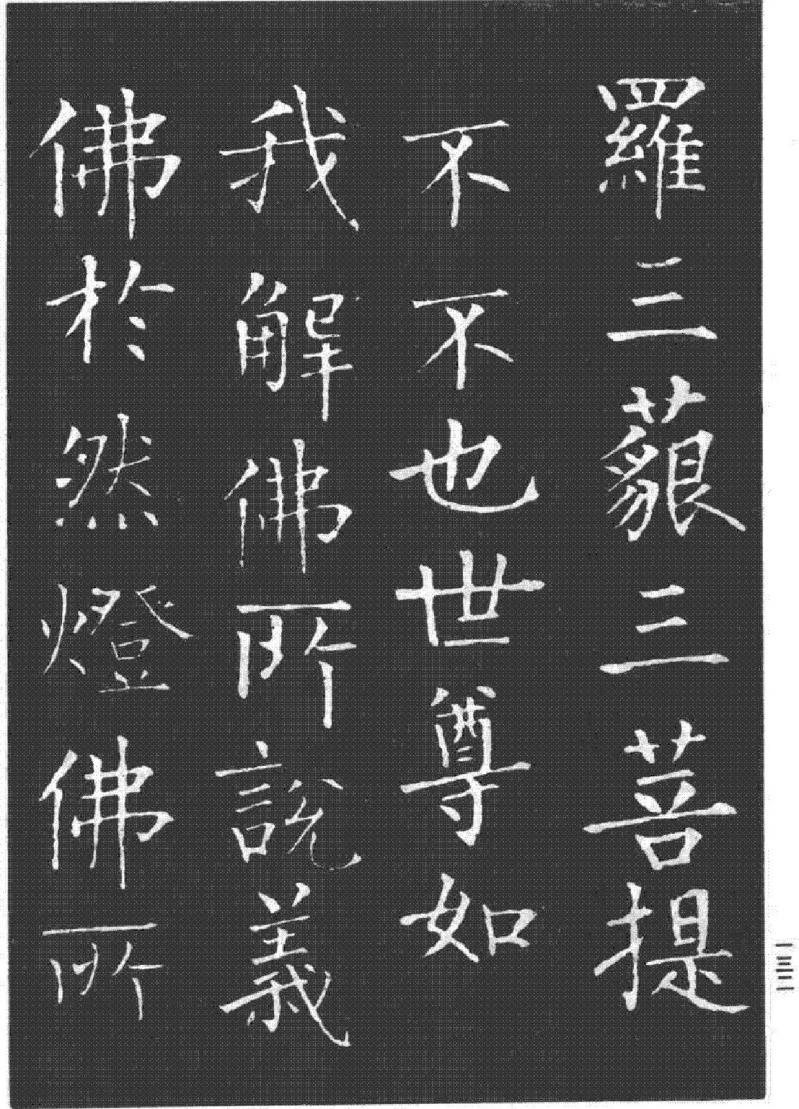 羅三藐三菩提
不不也世尊如
我解佛所說義
佛於然燈佛所
一三一